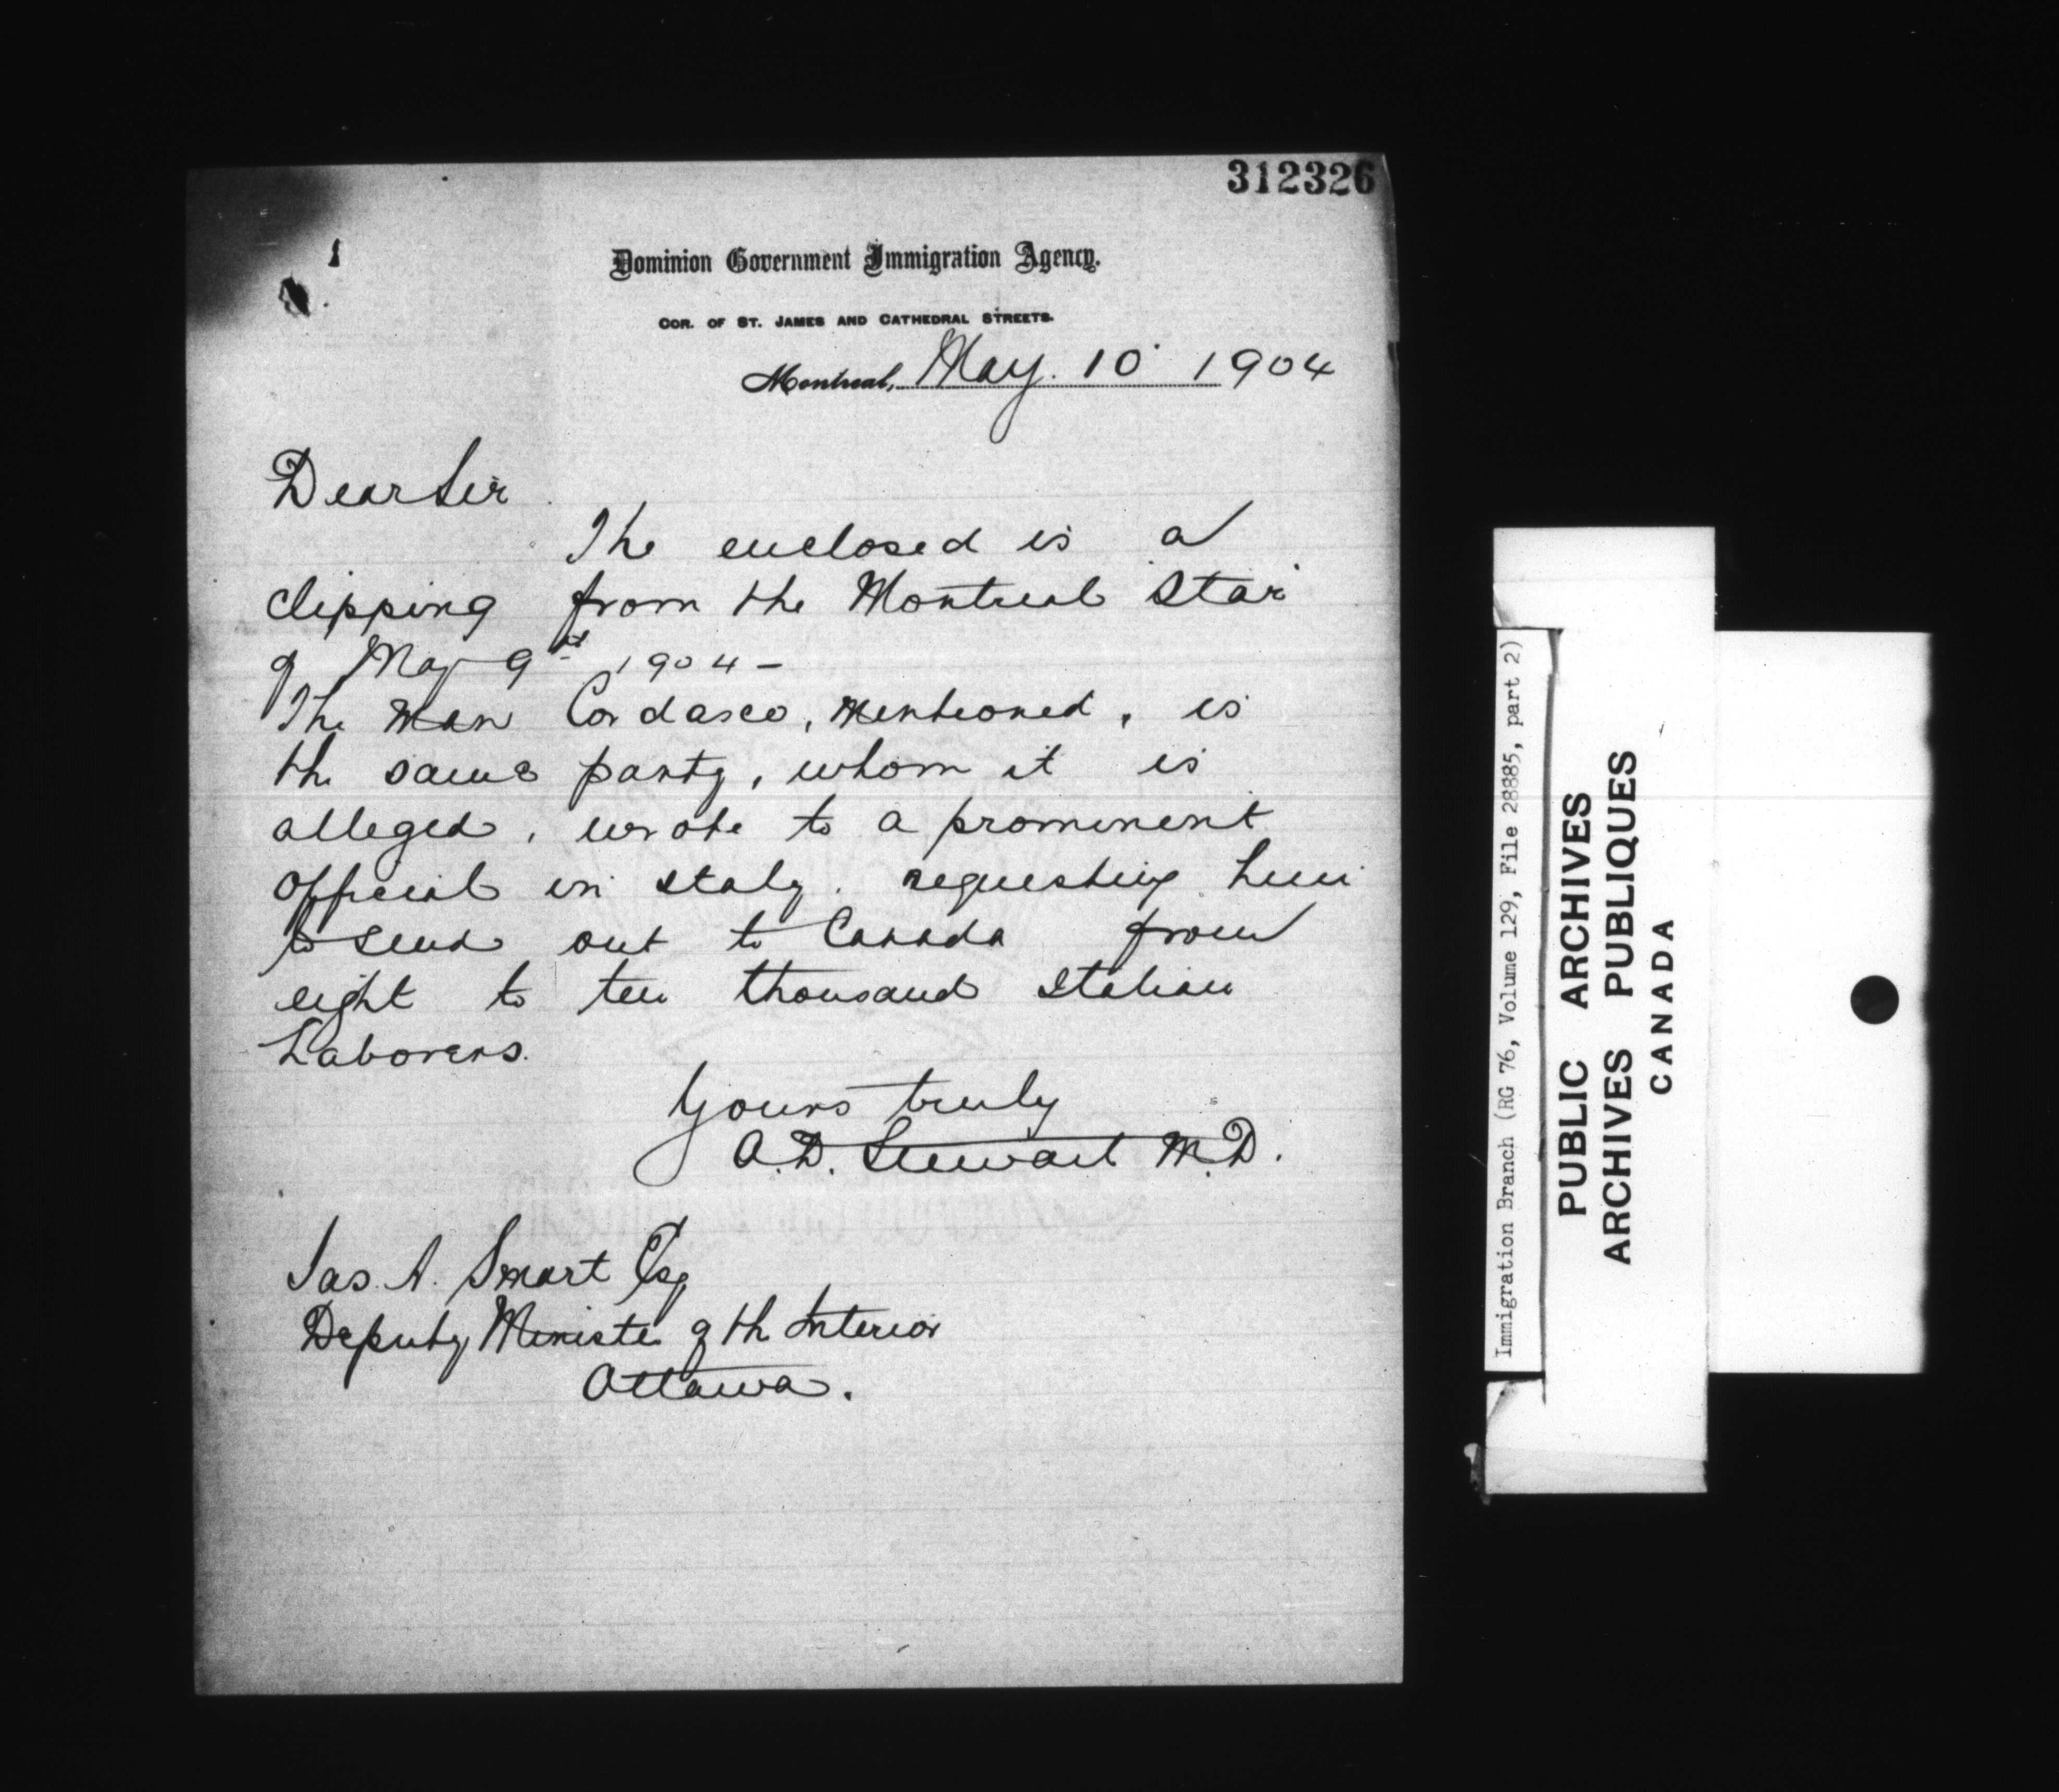 312326
1
Dominion Government Immigration Agency.
COR. OF ST. JAMES AND CATHEDRAL STREETS.
Montreal, May. 10 1904
Dear Sir
The enclosed is a
clipping from the Montreal "Star"
of May 9th 1904 -
The man Cordasco, mentioned, is
the same party, whom it is
alleged, wrote to a prominent
official in Italy. requesting him
to send out to Canada from
eight to ten thousand Italian
Laborers.
Yours truly
A.D. Stewart M.D.
Jas. A. Smart Esq
Deputy Minister of the Interior
Ottawa.
Immigration Branch (RG 76, Volume 129, File 28885, part 2)
PUBLIC ARCHIVES
ARCHIVES PUBLIQUES
CANADA